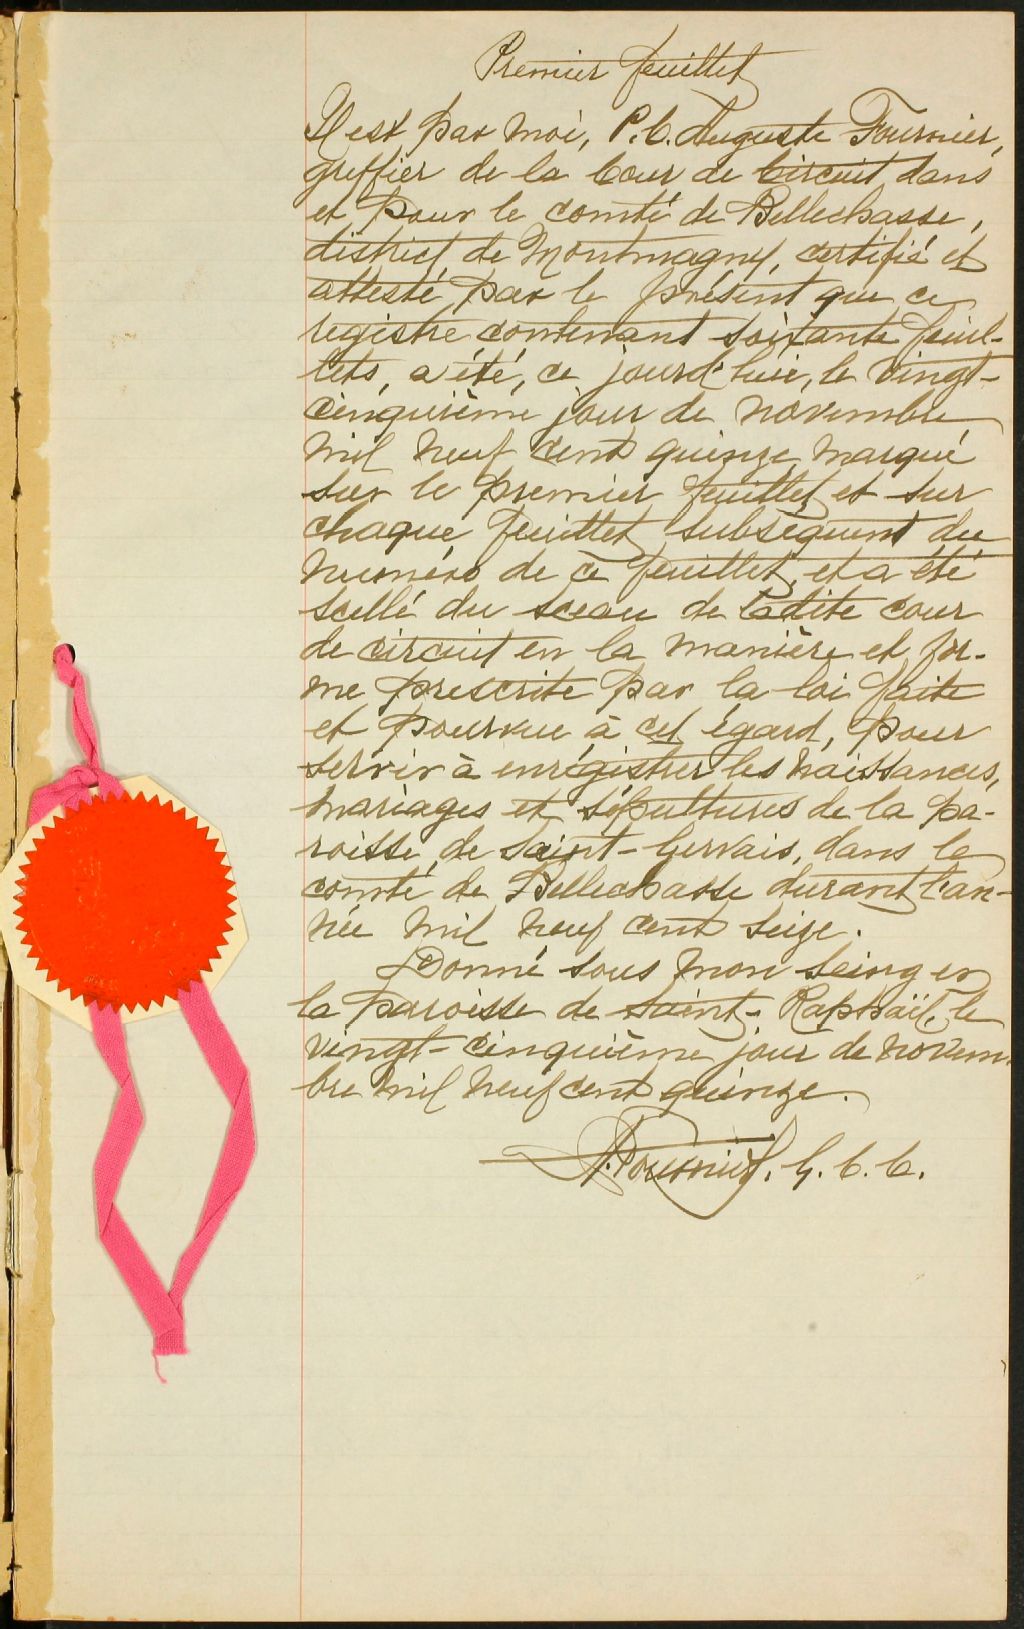 Premier feuillet
Il est par moi, P. C. Auguste Fournier,
greffier de la Cour de Circuit dans
et pour le comté de Bellechasse,
district de Montmagny, certifié et
attesté par le présent que ce
registre contenant soixante feuil-
lets, a été, ce jourd'hui, le vingt-
cinquième jour de novembre
mil neuf cent quinze, marqué
sur le premier feuillet et sur
chaque feuillet subséquent du
numéro de ce feuillet, et a été
scellé du sceau de ladite cour
de circuit en la manière et for-
me prescrite par la loi faite
et pourvue à cet égard, pour
servir à enrégistrer les naissances,
mariages et sépultures de la pa-
roisse de Saint-Gervais, dans le
comté de Bellechasse durant l'an-
née mil neuf cent seize.
Donné sous mon seing en
la paroisse de Saint-Raphaël, le
vingt-cinquième jour de novem-
bre mil neuf cent quinze.
A. Fournier, G. C. C.